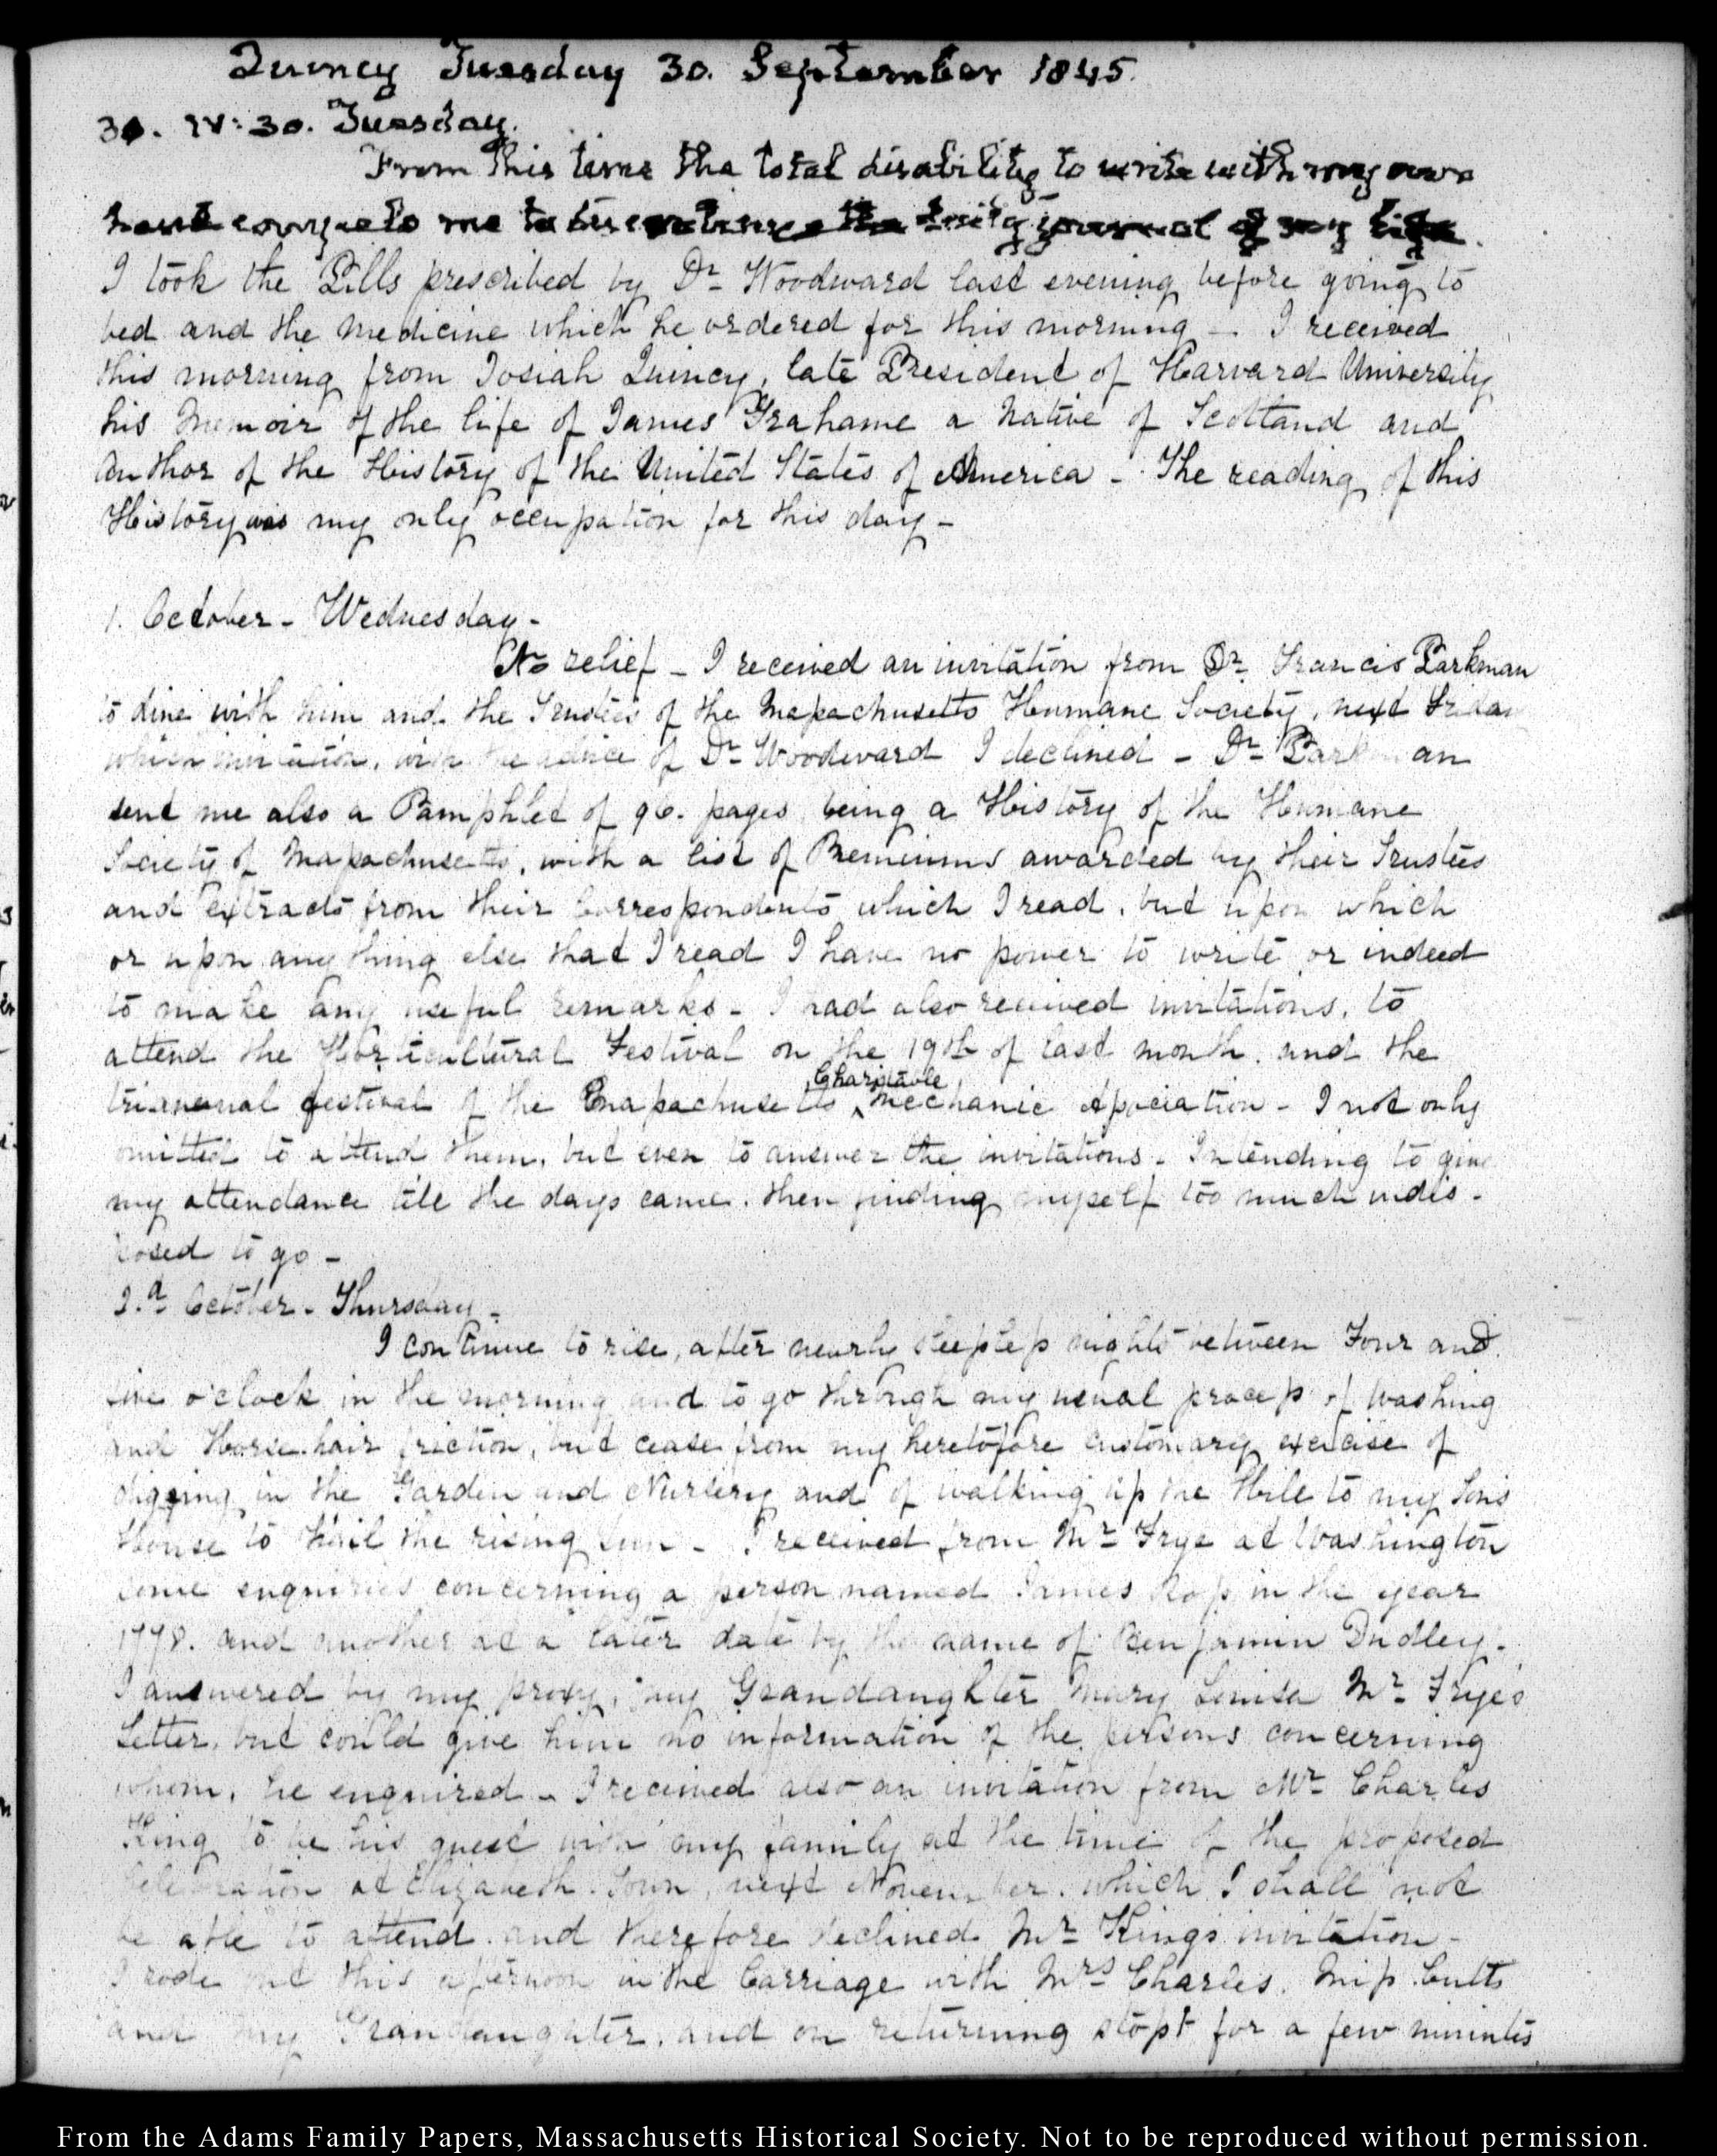 Quincy Tuesday 30. September 1845.
30. IV: 30. Tuesday.
From this time the total disability to write with my own
hand compels me to discontinue the daily journal of my life.
I took the Pills prescribed by Dr Woodward last evening before going to
bed and the Medicine which he ordered for this morning - I received
this morning from Josiah Quincy, late President of Harvard University
his Memoir of the life of James Grahame a Native of Scotland and
Author of the History of the United States of America - The reading of this
History was my only occupation for this day -
1. October - Wednesday -
No relief - I received an invitation from Dr Francis Parkman
to dine with him and the Trustees of the Massachusetts Humane Society, next Friday
which invitation, with the advice of Dr Woodward I declined - Dr Parkman
sent me also a Pamphlet of 96. pages being a History of the Humane
Society of Massachusetts, with a list of Premiums awarded by their Trustees
and extracts from their Correspondents which I read, but upon which
or upon any thing else that I read I have no power to write or indeed
to make any useful remarks - I had also received invitations, to
attend the Horticultural Festival on the 19th of last month, and the
Charitable
triennual festival of the Massachusetts ^ Mechanic Association - I not only
omitted to attend them, but even to answer the invitations - Intending to give
my attendance till the days came, then finding myself too much indis-
posed to go -
2.d October - Thursday -
I continue to rise, after nearly sleepless nights between Four and
five o'clock in the morning and to go through my usual process of Washing
and Horse-hair friction, but cease from my heretofore customary exercise of
digging in the Garden and Nursery and of walking up the Hill to my Sons
House to hail the rising Sun - I received from Mr Frye at Washington
some enquiries concerning a person named James Ross in the year
1798. and another at a later date by the name of Benjamin Dudley -
I answered by my proxy, my Grandaughter Mary Louisa Mr Frye's
Letter, but could give him no information of the persons concerning
whom, he enquired - I received also an invitation from Mr Charles
King to be his guest with my family at the time of the proposed
Celebration at Elizabeth Town, next November, which I shall not
be able to attend and therefore declined Mr King's invitation -
I rode out this afternoon in the Carriage with Mrs Charles, Miss Cutts
and my Grandaughter, and on returning stopt for a few minutes
From the Adams Family Papers, Massachusetts Historical Society. Not to be reproduced without permission.